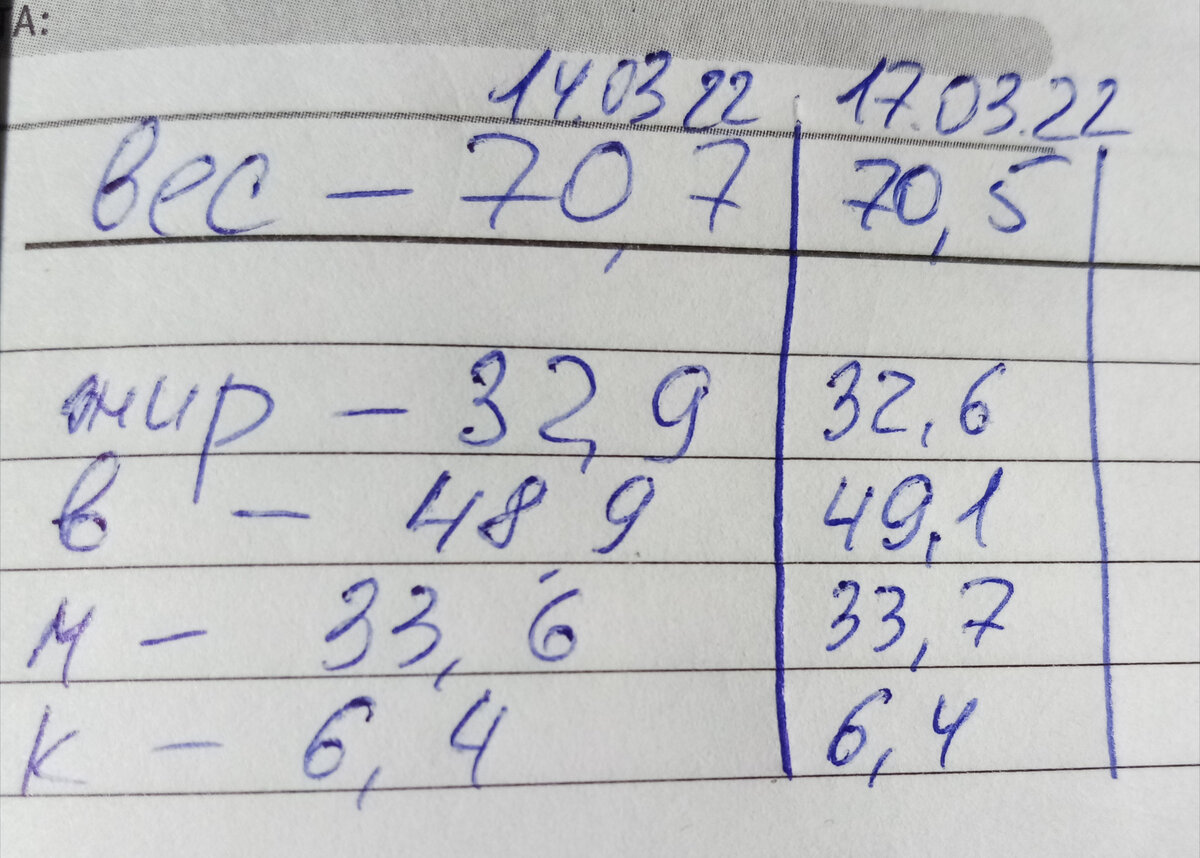 ТА:
14.03 22 17.03.22
вес - 70,7 70,5
жир - 32,9 32,6
в - 48 9 49,1
м - 33,6 33,7
к - 6,4 6,4